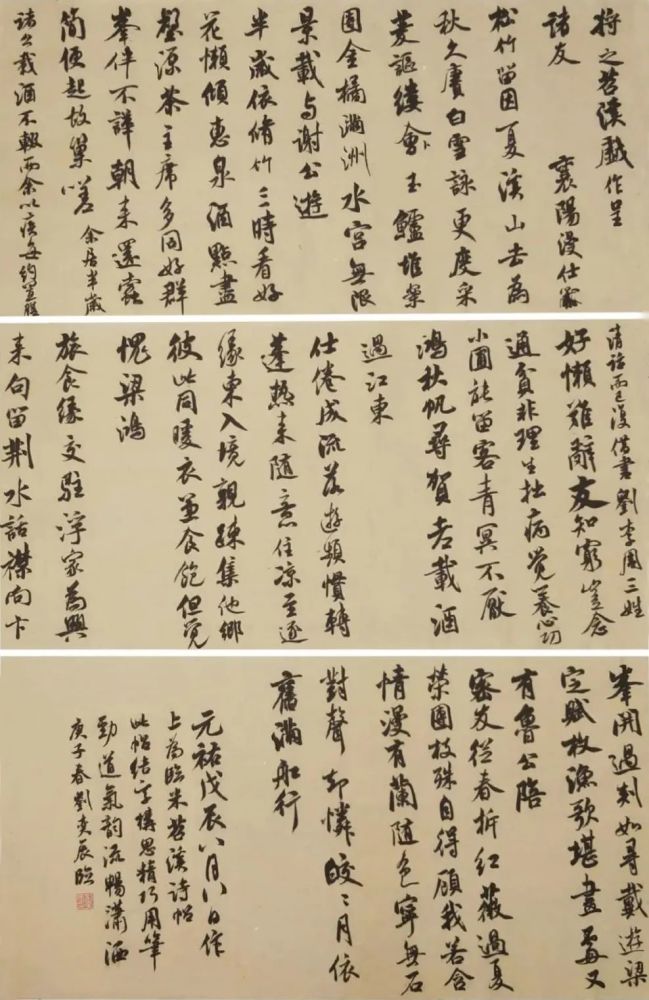 将之苕溪戲作呈
諸友 襄陽漫仕黻
松竹留因夏溪山去為
秋久賡白雪詠更度采
菱謳縷會玉鱸堆案
團金橘滿洲水宮無限
景載与謝公遊
半歲依脩竹三時看好
花懶傾惠泉酒點盡
壑源茶主席多同好群
峯伴不譁朝来還蠹
簡便起故巢嗟 余居半歲
諸公載酒不輟而余以疾每約置膳
清話而已復借書劉李周三姓
好懶難辭友知窮豈念
通貧非理生拙病覺養心功
小圃能留客青冥不厭
鴻秋帆尋賀老載酒
過江東
仕倦成流落遊頻慣轉
蓬熱来隨意住涼至逐
緣東入境親踈集他鄉
彼此同暖衣兼食飽但覺
愧梁鴻
旅食緣交駐浮家為興
来句留荆水話襟向卞
峯開過剡如尋戴遊梁
定賦枚漁歌堪畫處又
有魯公陪
密友從春拆紅薇過夏
榮團枝殊自得顧我若含
情漫有蘭隨色寧無石
對聲却憐皎〻月依
舊滿舡行
元祐戊辰八月八日作
上為臨米苕溪詩帖
此帖結字構思精巧用筆
勁遒氣韵流暢瀟洒
庚子春劉奕辰臨